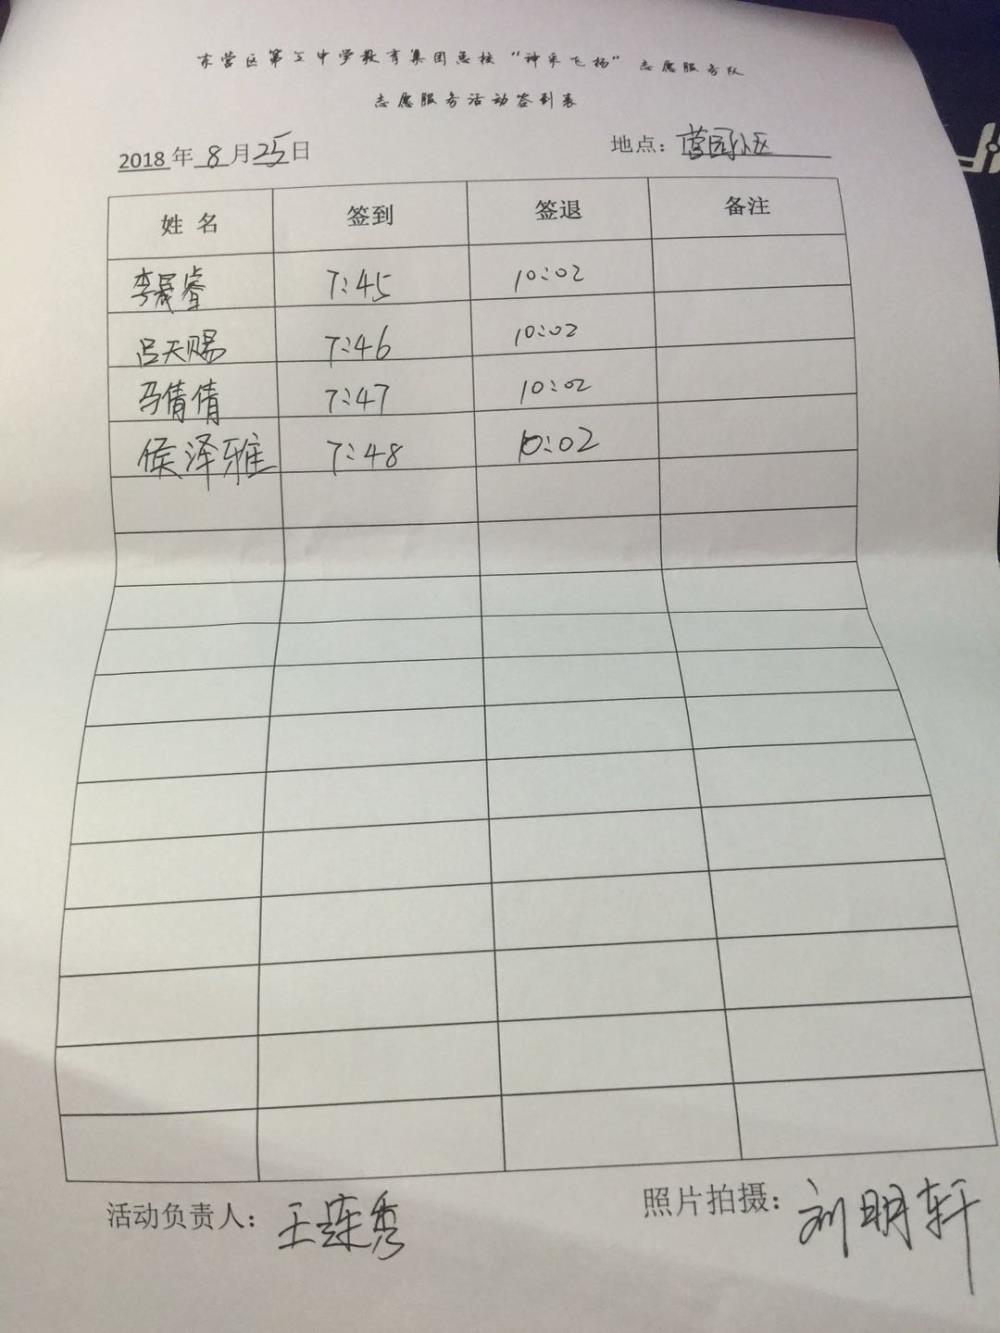 东营区第三中学教育集团总校“神采飞杨”志愿服务队
志愿服务活动签到表
2018年8月25日 地点：茑园小区
姓名 签到 签退 备注
李晟睿 7:45 10:02
吕天赐 7:46 10:02
马倩倩 7:47 10:02
侯泽雅 7:48 10:02
活动负责人：王 秀 照片拍摄：刘明轩